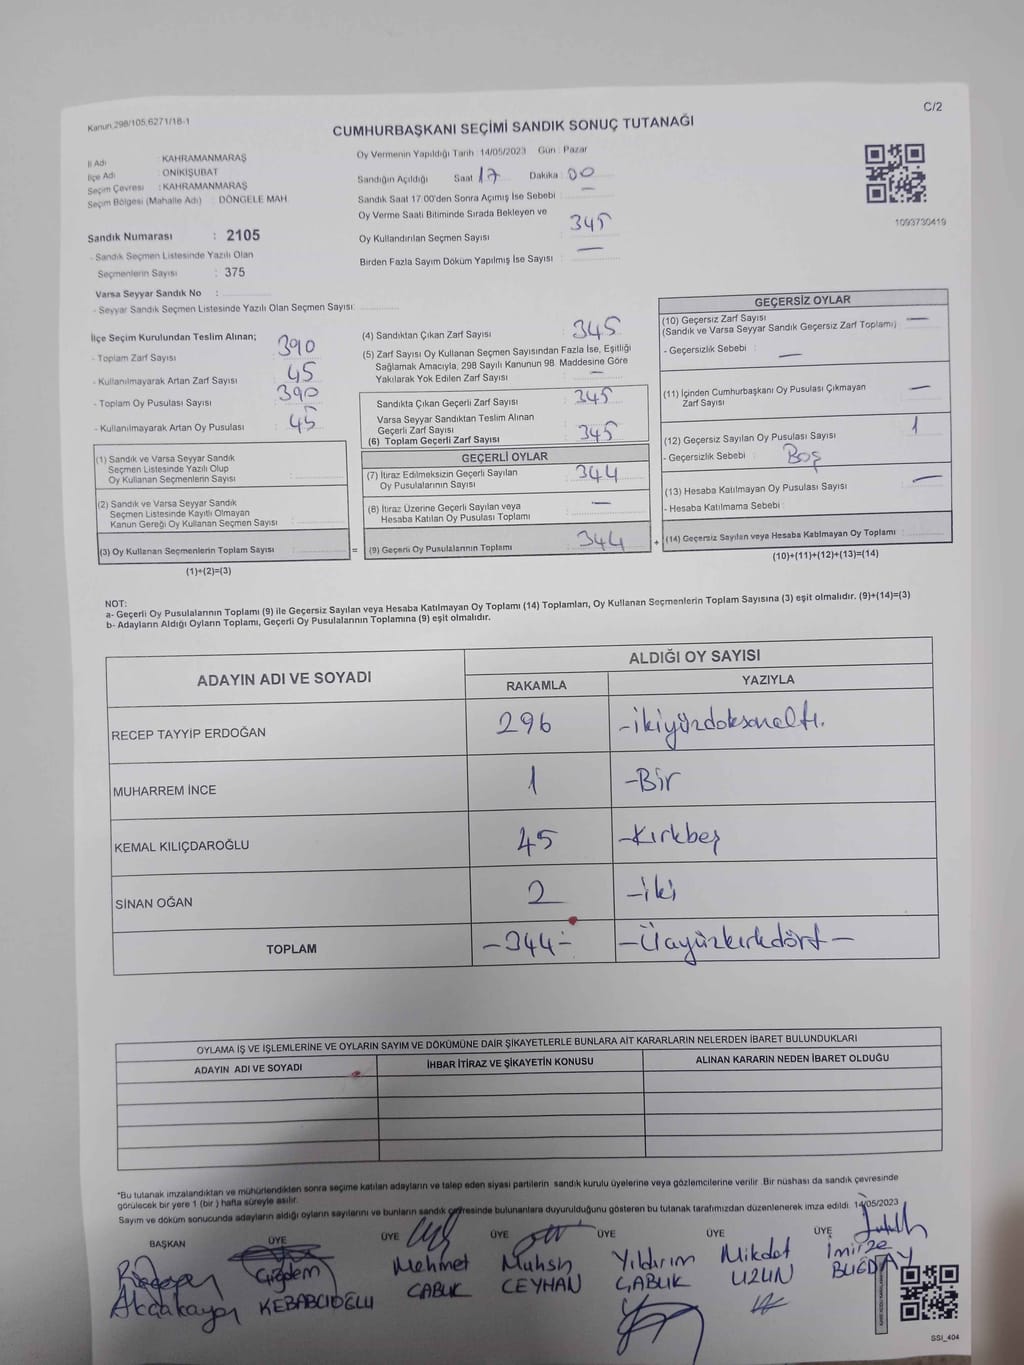 Kanun:298/105,6271/18-1
C/2
CUMHURBAŞKANI SEÇİMİ SANDIK SONUÇ TUTANAĞI
İl Adı : KAHRAMANMARAŞ
İlçe Adı : ONİKİŞUBAT
Seçim Çevresi : KAHRAMANMARAŞ
Seçim Bölgesi (Mahalle Adı) : DÖNGELE MAH.
Sandık Numarası : 2105
- Sandık Seçmen Listesinde Yazılı Olan
Seçmenlerin Sayısı : 375
Varsa Seyyar Sandık No :
- Seyyar Sandık Seçmen Listesinde Yazılı Olan Seçmen Sayısı:
Oy Vermenin Yapıldığı Tarih : 14/05/2023 Gün : Pazar
Sandığın Açıldığı Saat 17 Dakika 00
Sandık Saat 17.00'den Sonra Açımış İse Sebebi : —
Oy Verme Saati Bitiminde Sırada Bekleyen ve
Oy Kullandırılan Seçmen Sayısı 345
Birden Fazla Sayım Döküm Yapılmış İse Sayısı —
1093730419
İlçe Seçim Kurulundan Teslim Alınan;
- Toplam Zarf Sayısı 390
- Kullanılmayarak Artan Zarf Sayısı 45
- Toplam Oy Pusulası Sayısı 390
- Kullanılmayarak Artan Oy Pusulası 45
(1) Sandık ve Varsa Seyyar Sandık
Seçmen Listesinde Yazılı Olup
Oy Kullanan Seçmenlerin Sayısı :
(2) Sandık ve Varsa Seyyar Sandık
Seçmen Listesinde Kayıtlı Olmayan
Kanun Gereği Oy Kullanan Seçmen Sayısı :
(3) Oy Kullanan Seçmenlerin Toplam Sayısı :
(1)+(2)=(3)
(4) Sandıktan Çıkan Zarf Sayısı : 345
(5) Zarf Sayısı Oy Kullanan Seçmen Sayısından Fazla İse, Eşitliği
Sağlamak Amacıyla, 298 Sayılı Kanunun 98. Maddesine Göre
Yakılarak Yok Edilen Zarf Sayısı : —
Sandıkta Çıkan Geçerli Zarf Sayısı : 345
Varsa Seyyar Sandıktan Teslim Alınan
Geçerli Zarf Sayısı
(6) Toplam Geçerli Zarf Sayısı : 345
GEÇERLİ OYLAR
(7) İtiraz Edilmeksizin Geçerli Sayılan
Oy Pusulalarının Sayısı : 344
(8) İtiraz Üzerine Geçerli Sayılan veya
Hesaba Katılan Oy Pusulası Toplamı : —
= (9) Geçerli Oy Pusulalarının Toplamı : 344 +
GEÇERSİZ OYLAR
(10) Geçersiz Zarf Sayısı —
(Sandık ve Varsa Seyyar Sandık Geçersiz Zarf Toplamı)
- Geçersizlik Sebebi : —
(11) İçinden Cumhurbaşkanı Oy Pusulası Çıkmayan
Zarf Sayısı —
(12) Geçersiz Sayılan Oy Pusulası Sayısı 1
- Geçersizlik Sebebi : Boş
(13) Hesaba Katılmayan Oy Pusulası Sayısı —
- Hesaba Katılmama Sebebi :
(14) Geçersiz Sayılan veya Hesaba Katılmayan Oy Toplamı :
(10)+(11)+(12)+(13)=(14)
NOT:
a- Geçerli Oy Pusulalarının Toplamı (9) ile Geçersiz Sayılan veya Hesaba Katılmayan Oy Toplamı (14) Toplamları, Oy Kullanan Seçmenlerin Toplam Sayısına (3) eşit olmalıdır. (9)+(14)=(3)
b- Adayların Aldığı Oyların Toplamı, Geçerli Oy Pusulalarının Toplamına (9) eşit olmalıdır.
ADAYIN ADI VE SOYADI
ALDIĞI OY SAYISI
RAKAMLA YAZIYLA
RECEP TAYYİP ERDOĞAN 296 -ikiyüzdoksanaltı.
MUHARREM İNCE 1 -Bir
KEMAL KILIÇDAROĞLU 45 -Kırkbeş
SİNAN OĞAN 2 -iki
TOPLAM -344- -Üçyüzkırkdört-
OYLAMA İŞ VE İŞLEMLERİNE VE OYLARIN SAYIM VE DÖKÜMÜNE DAİR ŞİKAYETLERLE BUNLARA AİT KARARLARIN NELERDEN İBARET BULUNDUKLARI
ADAYIN ADI VE SOYADI İHBAR İTİRAZ VE ŞİKAYETİN KONUSU ALINAN KARARIN NEDEN İBARET OLDUĞU
*Bu tutanak imzalandıktan ve mühürlendikten sonra seçime katılan adayların ve talep eden siyasi partilerin sandık kurulu üyelerine veya gözlemcilerine verilir. Bir nüshası da sandık çevresinde
görülecek bir yere 1 (bir) hafta süreyle asılır.
Sayım ve döküm sonucunda adayların aldığı oyların sayılarını ve bunların sandık çevresinde bulunanlara duyurulduğunu gösteren bu tutanak tarafımızdan düzenlenerek imza edildi. 14/05/2023
BAŞKAN ÜYE ÜYE ÜYE ÜYE ÜYE ÜYE
Çiğdem Mehmet Muhsin Yıldırım Mikdat İmirze
KEBABCIOĞLU ÇABUK CEYHAN ÇABUK UZUN BUĞDAY
SSI_404